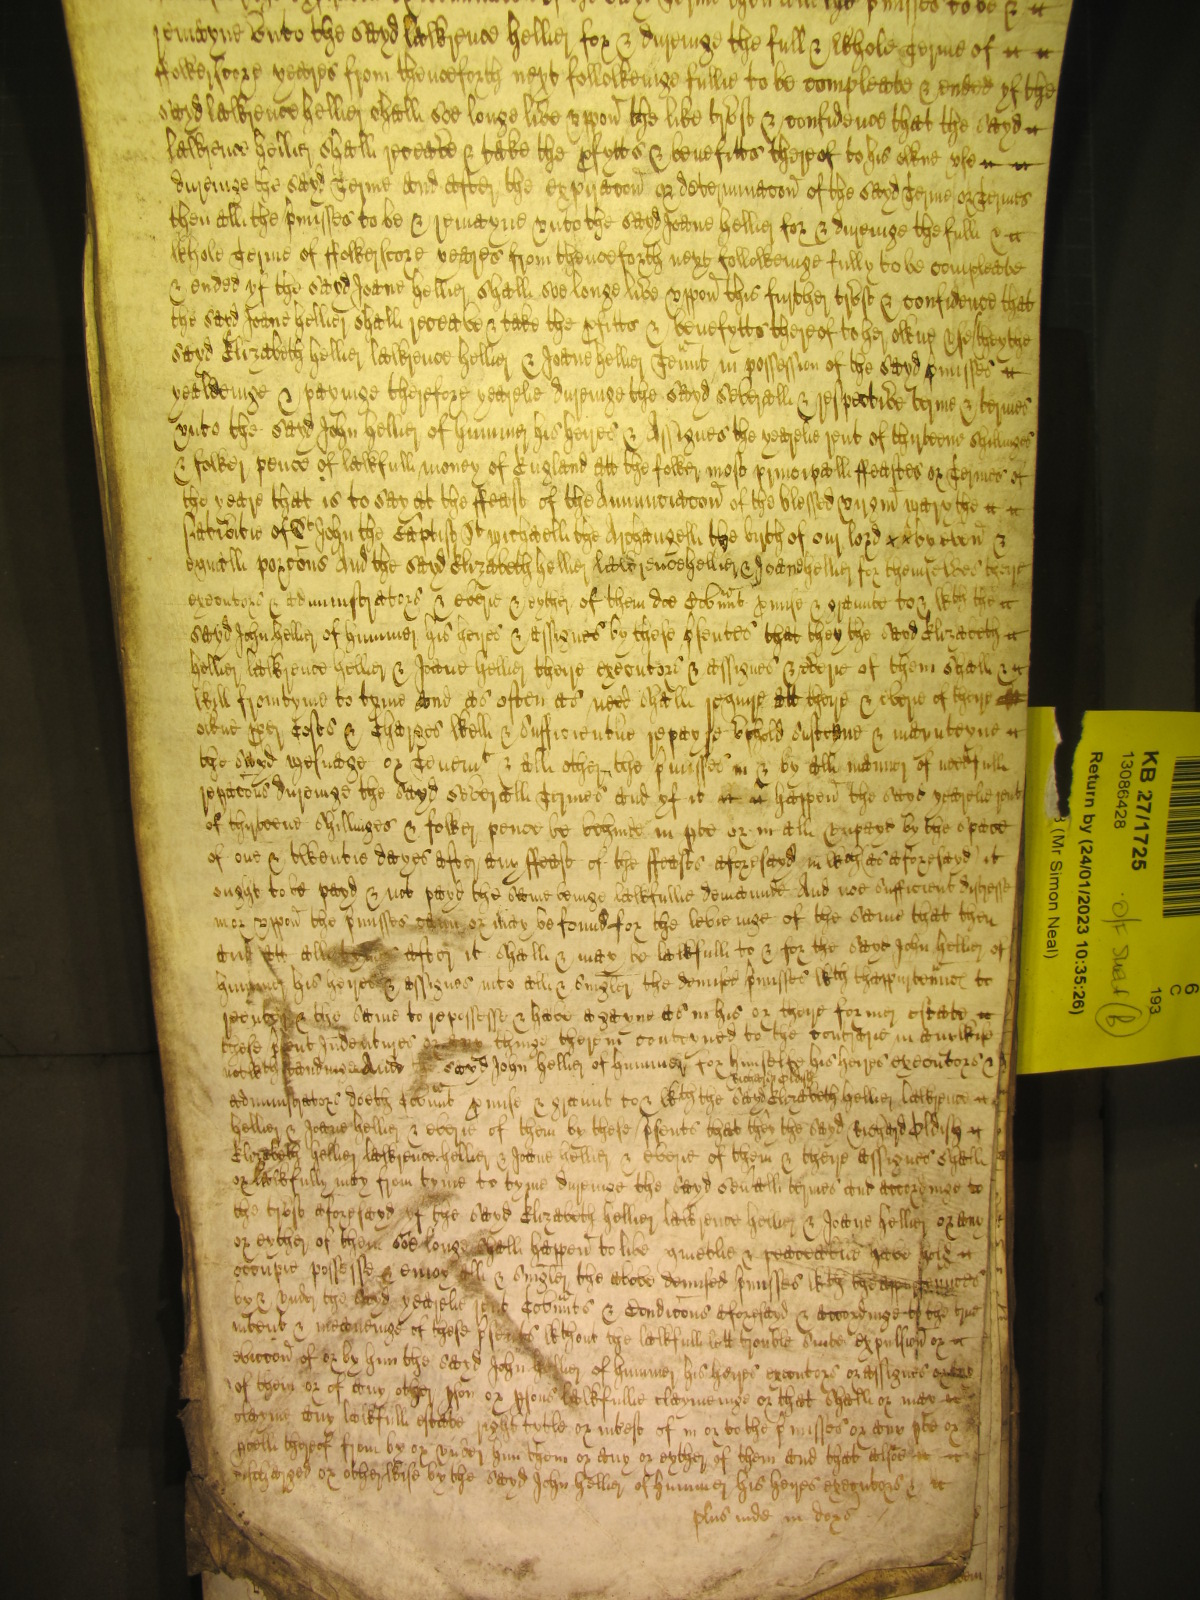 remayne unto the sayd lawrence hellier for & duringe the full & whole terme of
fowerscore yeares from thenceforth next followeinge fullie to be compleate & ended yf the
sayd lawrence hellier shall soe longe live uppon the like trust & confidence that the sayd
lawrence hellier shall receave & take the pfytts & benefitts thereof to his owne use
duringe the sayd terme And after the expiracon or determinacon of the sayd terme or termes
then all the pmisses to be & remayne unto the sayd Joane hellier for & duringe the full &
whole terme of ffowerscore yeares from thenceforth next followeinge fully to be compleate
& ended yf the sayd Joane hellier shall soe longe live uppon this further trust & confidence that
the sayd Joane hellier shall receave & take the pfitts & benefytts thereof to her owne use they the
sayd Elizabeth hellier lawrence hellier & Joane hellier in possession of the sayd pmisses
yealdeinge & payinge therefore yearelie duringe the sayd severall & respective terme & termes
unto the sayd John hellier of hummer his heyres & Assignes the yearelie rent of thirteene shillinges
& fower pence of lawfull money of England att the fower most principall ffeastes or termes of
the yeare that is to say at the ffeast of the Annunciacon of the blessed virgin mary the
Nativitie of St John the Baptist St michaell the Archangell the birth of our lord by even &
equall porcons And the sayd Elizabeth hellier lawrence hellier & Joane hellier for themselves there
executors & administrators & everie & eyther of them doe Covnt pmise & graunte to & wth the
sayd John hellier of hummer his heyres & assignes by these psentes that they the sayd Elizabeth
hellier lawrence hellier & Joane hellier there executors & assignes & everie of them shall &
will from tyme to tyme and as often as need shall require att there & everie of there
owne pper Costs & Charges well & sufficientlie repayre uphold susteyne & maynteyne
the sayd mesuage or Tenemt & all other the pmisses in & by all manner of needfull
repacons duringe the sayd severall termes and yf it happen the sayd yearelie rent
of thirteene shillinges & fower pence be behinde in pte or in all unpayd by the space
of one & twentie dayes after any ffeast of the ffeasts aforesayd in wch as aforesayd it
ought to be payd & not payd the same beinge lawfullie demaunded And noe sufficient distresse
in or uppon the pmisses cann or may be found for the levieinge of the same that then
and att all tymes after it shall & may be lawfull to & for the sayd John hellier of
hummer his heyres & assignes into all & singler the demised pmisses wth thappurtennces to
reenter & the same to repossesse & have agayne as in his or there former estate
these psent Indentures or any thinge therein conteyned to the contrarie in anywise
notwthstandinge And the sayd John hellier of hummer for himselfe his heyres executors &
administrators doeth Covnt pmise & graunt to & wth the Richard Oldish sayd Elizabeth hellier lawrence
hellier & Joane hellier & everie of them by these psents that they the sayd Richard Oldish
Elizabeth hellier lawrence hellier & Joane hellier & everie of them & there assignes shall
or lawfully may from tyme to tyme duringe the sayd sevall termes and accordinge to
the trust aforesayd yf the sayd Elizabeth hellier lawrence hellier & Joane hellier or any
or eyther of them soe longe shall happen to live quietlie & peaceablie have hold
occupie possesse & enioy all & singler the above demised pmisses wth the appurtennces
by & under the sayd yearelie rent Covnts & Condicons aforesayd & accordinge to the true
intent & meaneinge of these psents wthout the lawfull lett trouble suite expulsion or
eviccon of or by him the sayd John hellier of hummer his heyres executors or assignes or anie
of them or of any other pson or psons lawfullie claymeinge or that shall or may
clayme any lawfull estate right tytle or intest of in or to the pmisses or any pte or
pcell thereof from by or under him them or any or eyther of them and that alsoe
discharged or otherwise by the sayd John hellier of hummer his heyres executors &
plus inde in dorso
KB 27/1725
13086428
Return by (24/01/2023 10:35:26)
(Mr Simon Neal)
193
6
C